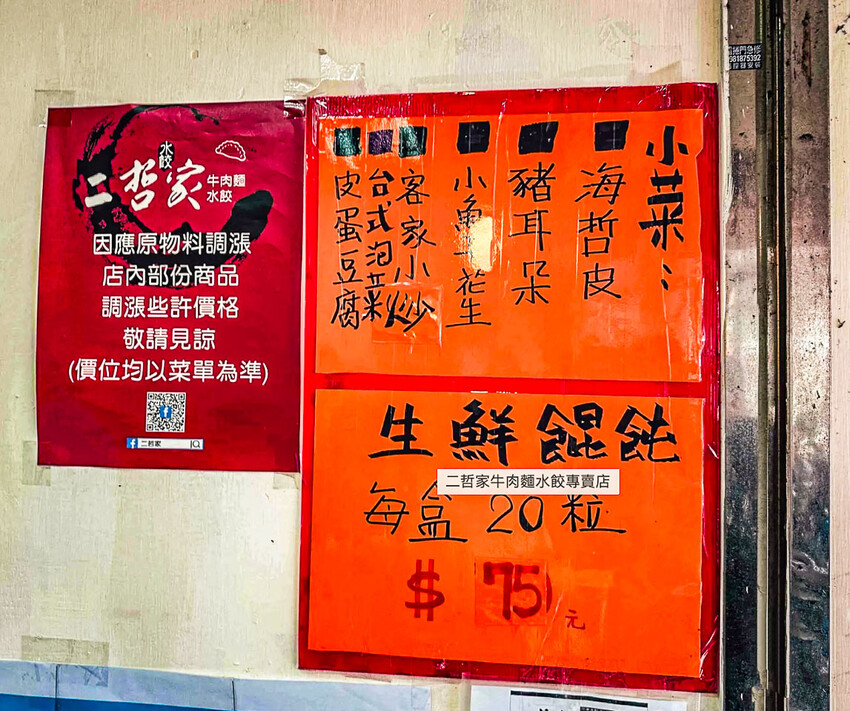 水餃
二哲家
牛肉麵
水餃
因應原物料調漲
店內部份商品
調漲些許價格
敬請見諒
(價位均以菜單為準)
二哲家
小菜：
海哲皮
豬耳朵
小魚干花生
客家小炒
台式泡菜
皮蛋豆腐
生鮮餛飩
二哲家牛肉麵水餃專賣店
每盒20粒
$75元